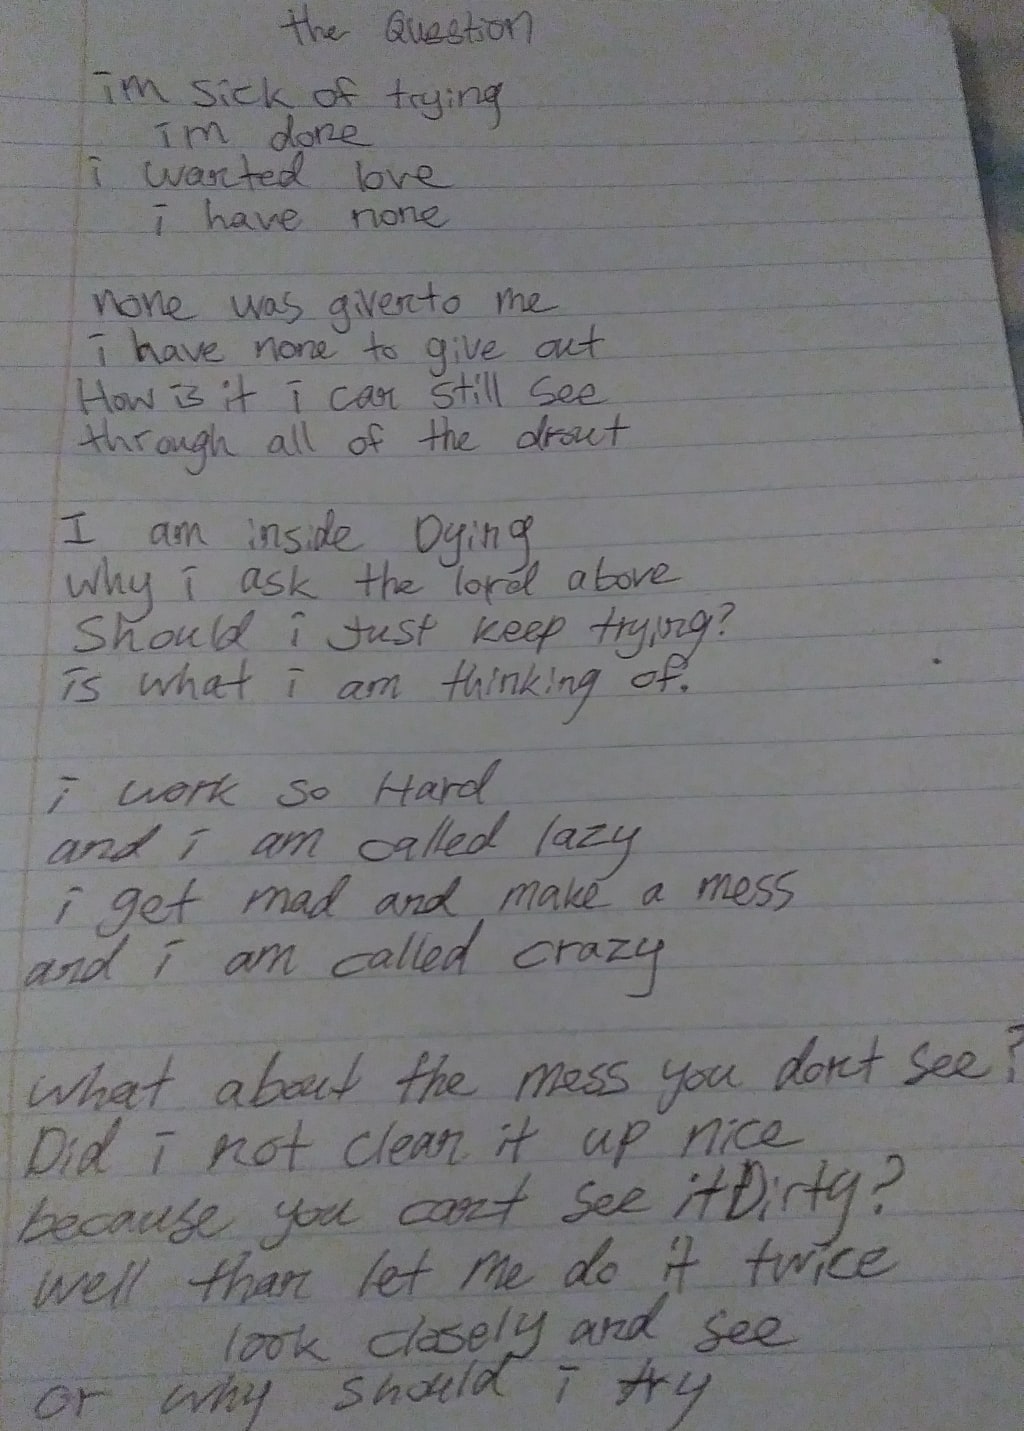 the Question
im sick of trying
im done
i wanted love
i have none
none was given to me
i have none to give out
How is it i can still see
through all of the drout
I am inside Dying
why i ask the lord above
Should i Just keep trying?
is what i am thinking of.
i work so Hard
and i am called lazy
i get mad and make a mess
and i am called crazy
what about the mess you dont see?
Did i not clean it up nice
because you cant see it Dirty?
well than let me do it twice
look closely and see
or why should i try